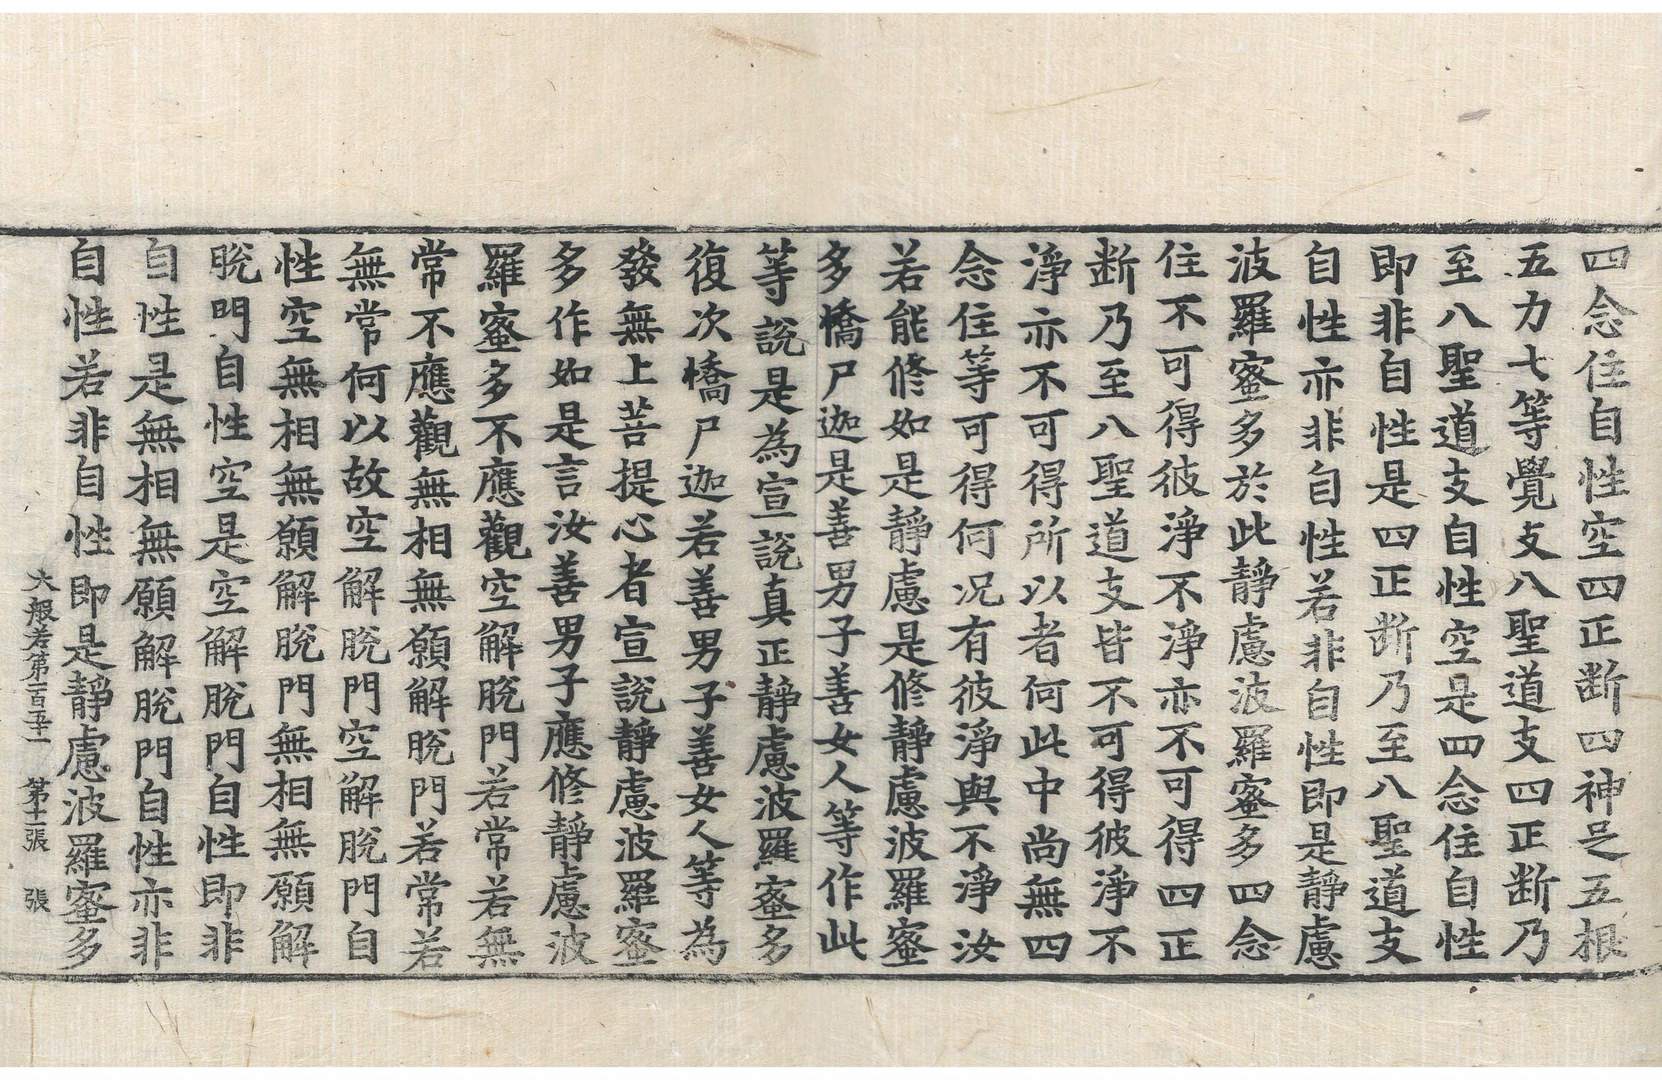 四念住自性空四正断四神足五根
五力七等覺支八聖道支四正断乃
至八聖道支自性空是四念住自性
即非自性是四正断乃至八聖道支
自性亦非自性若非自性即是靜慮
波羅蜜多於此靜慮波羅蜜多四念
住不可得彼淨不淨亦不可得四正
断乃至八聖道支皆不可得彼淨不
淨亦不可得所以者何此中尚無四
念住等可得何况有彼淨與不淨汝
若能修如是靜慮是修靜慮波羅蜜
多憍尸迦是善男子善女人等作此
等說是為宣說真正靜慮波羅蜜多
復次憍尸迦若善男子善女人等為
發無上菩提心者宣說靜慮波羅蜜
多作如是言汝善男子應修靜慮波
羅蜜多不應觀空解脫門若常若無
常不應觀無相無願解脫門若常若
無常何以故空解脫門空解脫門自
性空無相無願解脫門無相無願解
脫門自性空是空解脫門自性即非
自性是無相無願解脫門自性亦非
自性若非自性即是靜慮波羅蜜多
大般若第一百五十一 第十一張 張